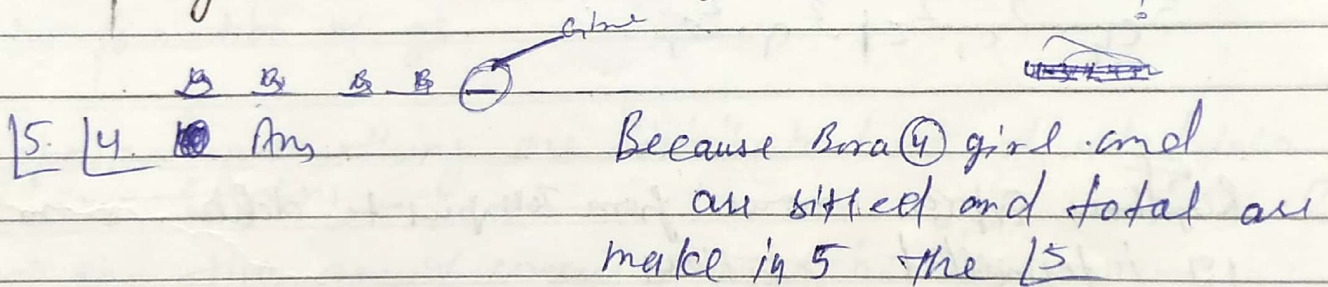 B B B B –
|5 |4 Ans Because Bora 4 girl and
are sitted and total are
make in 5 the |5